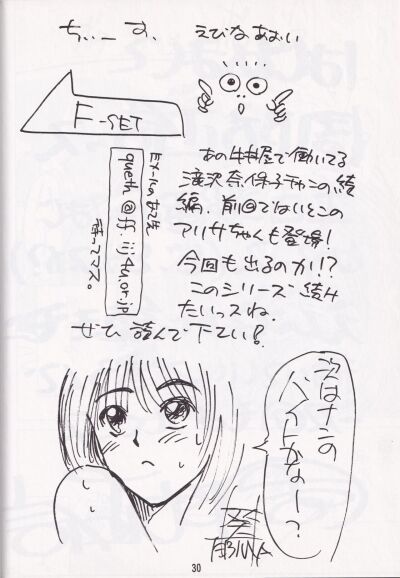 ちぃーす、 えびなあおい
F-SET
あの牛丼屋で働いてる
滝沢奈保子チャンの続
編、前回ではいとこの
アリサちゃくも登場!
今回も出るのか!?
このシリーズ続み
たいっスね、
ぜひ 読んで下さい!
Eメールのあて先
queth@ff.iij4u.or.jp
待ってマス。
次はナニの
バイトかなー?
EBINA
30